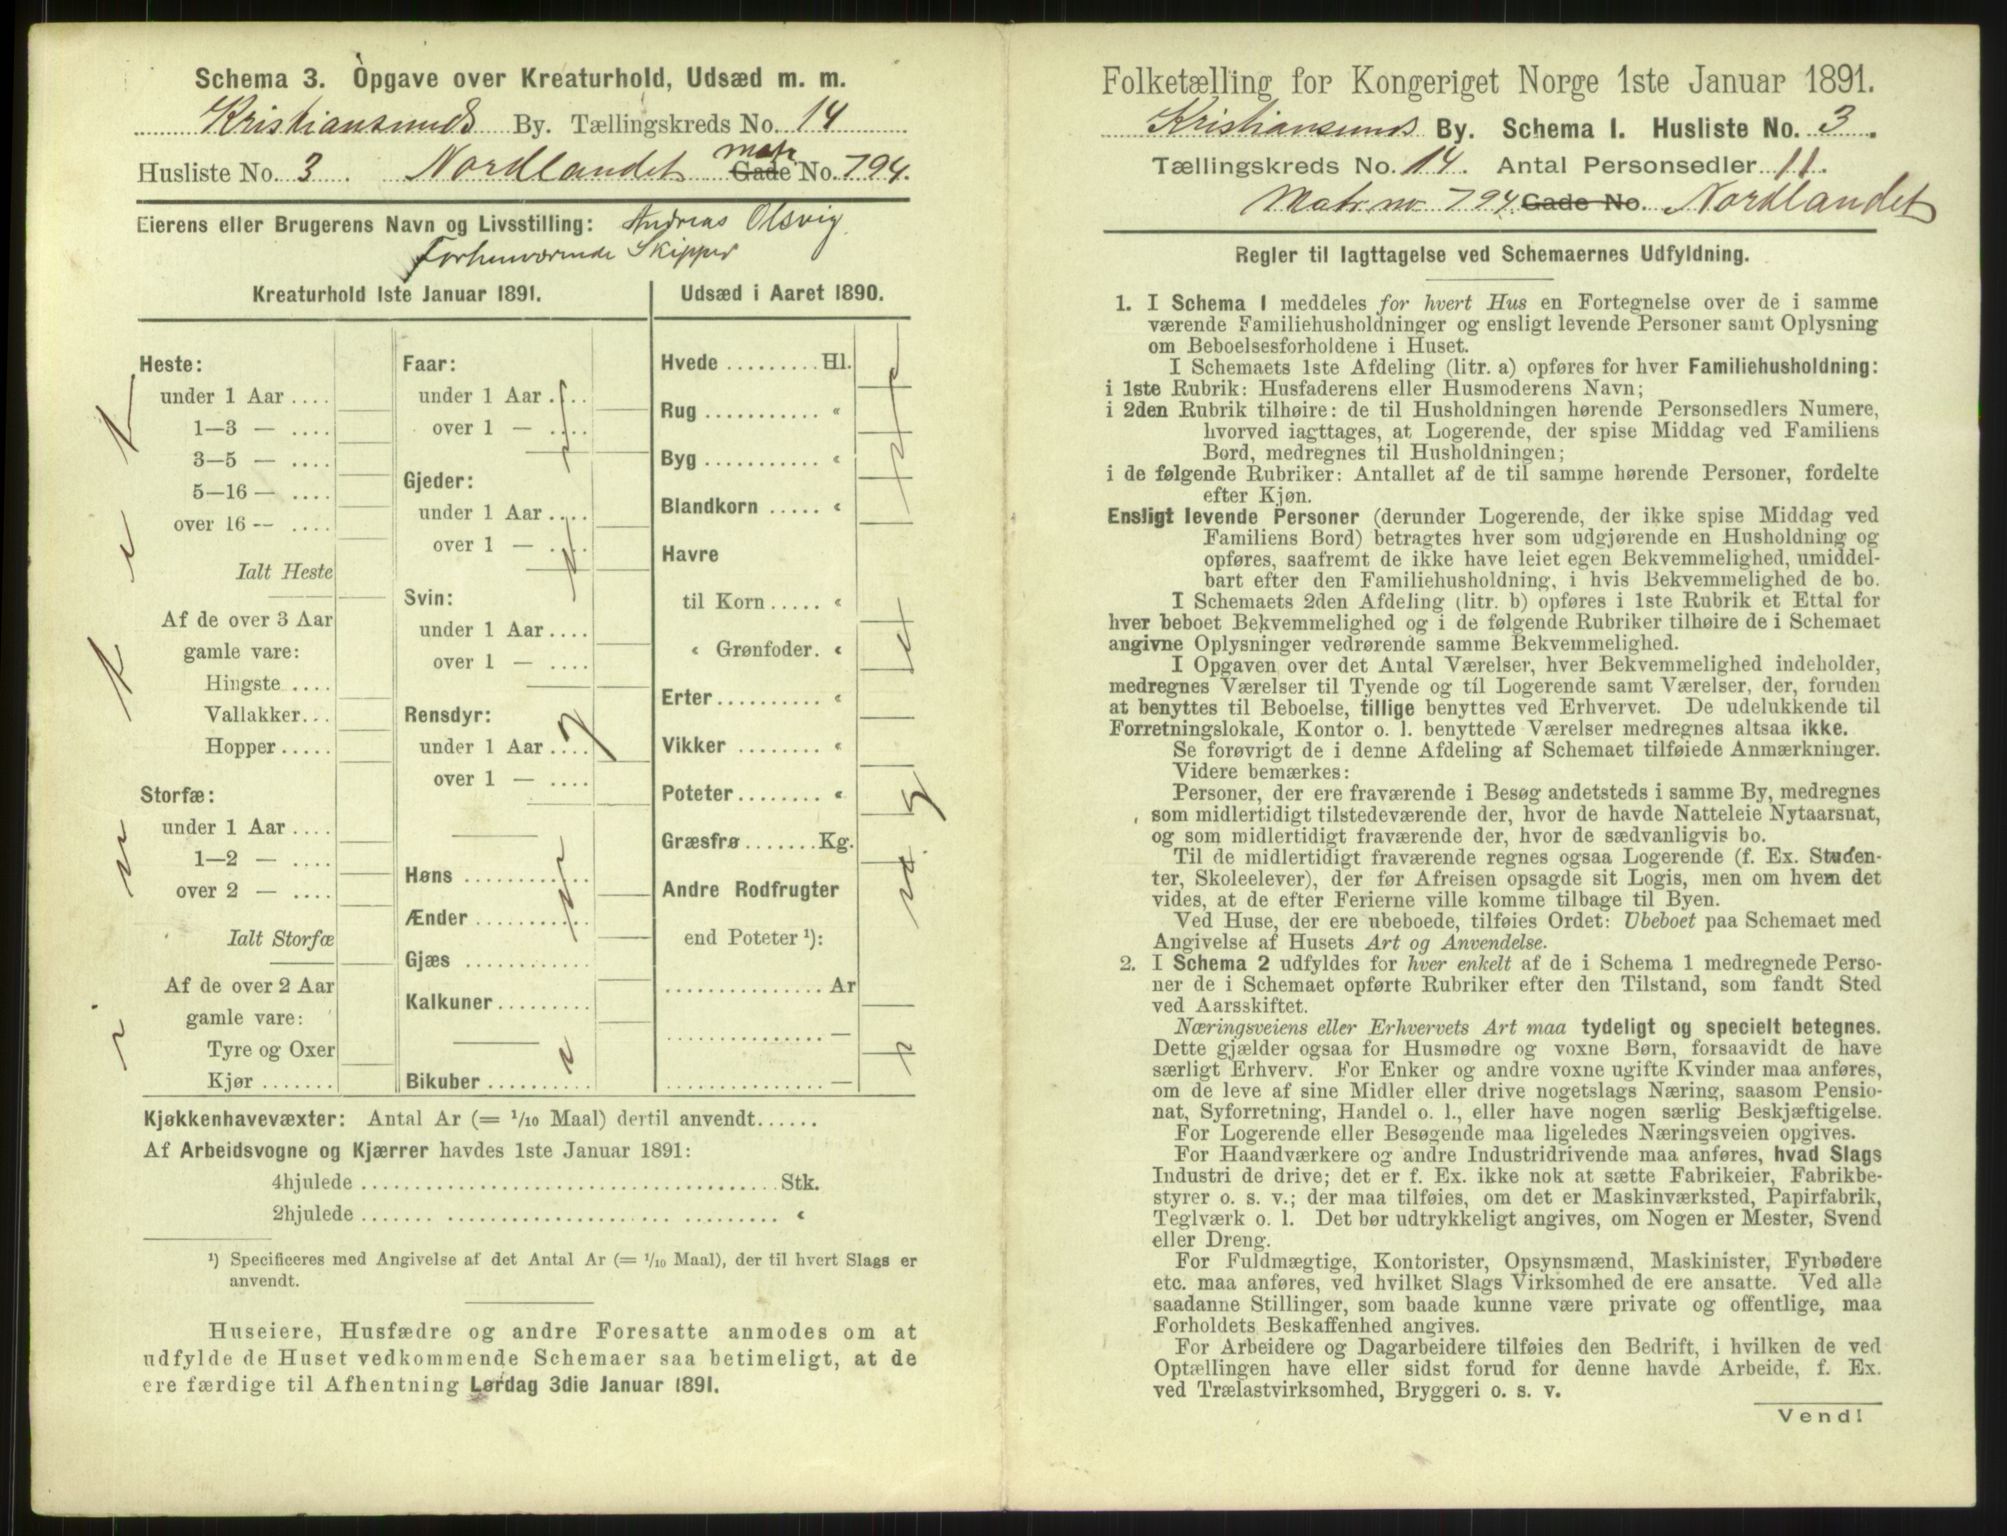 Schema 3. Opgave over Kreaturhold, Udsæd m. m.
Kristiansunds By. Tællingskreds No. 14
Husliste No. 3 Nordlandet Matr. Gade No. 794.
Eierens eller Brugerens Navn og Livsstilling: Andreas Olsvig
Forhenværende Skipper
Kreaturhold 1ste Januar 1891.
Heste:
under 1 Aar ....
1—3 — ....
3—5 — ....
5—16 — ....
over 16 — ....
Ialt Heste
Af de over 3 Aar
gamle vare:
Hingste ....
Vallakker...
Hopper .....
Storfæ:
under 1 Aar ....
1—2 — ....
over 2 — ....
Ialt Storfæ
Af de over 2 Aar
gamle vare:
Tyre og Oxer
Kjør .......
Faar:
under 1 Aar ....
over 1 — ....
Gjeder:
under 1 Aar ....
over 1 — ....
Svin:
under 1 Aar ....
over 1 — ....
Rensdyr:
under 1 Aar ....
over 1 — ....
Høns ............
Ænder ...........
Gjæs ............
Kalkuner .........
Bikuber ..........
Udsæd i Aaret 1890.
Hvede ......... Hl.
Rug ........... «
Byg ........... «
Blandkorn ..... «
Havre
til Korn ..... «
« Grønfoder. «
Erter .......... «
Vikker ........ «
Poteter ........ «
Græsfrø ....... Kg.
Andre Rodfrugter
end Poteter ¹):
............... Ar
............... —
............... —
Kjøkkenhavevæxter: Antal Ar (= 1/10 Maal) dertil anvendt......
Af Arbeidsvogne og Kjærrer havdes 1ste Januar 1891:
4hjulede ........................................ Stk.
2hjulede ........................................ «
¹) Specificeres med Angivelse af det Antal Ar (= 1/10 Maal), der til hvert Slags er
anvendt.
Huseiere, Husfædre og andre Foresatte anmodes om at
udfylde de Huset vedkommende Schemaer saa betimeligt, at de
ere færdige til Afhentning Lørdag 3die Januar 1891.
Folketælling for Kongeriget Norge 1ste Januar 1891.
Kristiansunds By. Schema 1. Husliste No. 3.
Tællingskreds No. 14. Antal Personsedler 11.
Matr. no. 794 Gade No. Nordlandet
Regler til Iagttagelse ved Schemaernes Udfyldning.
1. I Schema 1 meddeles for hvert Hus en Fortegnelse over de i samme
værende Familiehusholdninger og ensligt levende Personer samt Oplysning
om Beboelsesforholdene i Huset.
I Schemaets 1ste Afdeling (litr. a) opføres for hver Familiehusholdning:
i 1ste Rubrik: Husfaderens eller Husmoderens Navn;
i 2den Rubrik tilhøire: de til Husholdningen hørende Personsedlers Numere,
hvorved iagttages, at Logerende, der spise Middag ved Familiens
Bord, medregnes til Husholdningen;
i de følgende Rubriker: Antallet af de til samme hørende Personer, fordelte
efter Kjøn.
Ensligt levende Personer (derunder Logerende, der ikke spise Middag ved
Familiens Bord) betragtes hver som udgjørende en Husholdning og
opføres, saafremt de ikke have leiet egen Bekvemmelighed, umiddel-
bart efter den Familiehusholdning, i hvis Bekvemmelighed de bo.
I Schemaets 2den Afdeling (litr. b) opføres i 1ste Rubrik et Ettal for
hver beboet Bekvemmelighed og i de følgende Rubriker tilhøire de i Schemaet
angivne Oplysninger vedrørende samme Bekvemmelighed.
I Opgaven over det Antal Værelser, hver Bekvemmelighed indeholder,
medregnes Værelser til Tyende og til Logerende samt Værelser, der, foruden
at benyttes til Beboelse, tillige benyttes ved Erhvervet. De udelukkende til
Forretningslokale, Kontor o. l. benyttede Værelser medregnes altsaa ikke.
Se forøvrigt de i denne Afdeling af Schemaet tilføiede Anmærkninger.
Videre bemærkes:
Personer, der ere fraværende i Besøg andetsteds i samme By, medregnes
som midlertidigt tilstedeværende der, hvor de havde Natteleie Nytaarsnat,
og som midlertidigt fraværende der, hvor de sædvanligvis bo.
Til de midlertidigt fraværende regnes ogsaa Logerende (f. Ex. Studen-
ter, Skoleelever), der før Afreisen opsagde sit Logis, men om hvem det
vides, at de efter Ferierne ville komme tilbage til Byen.
Ved Huse, der ere ubeboede, tilføies Ordet: Ubeboet paa Schemaet med
Angivelse af Husets Art og Anvendelse.
2. I Schema 2 udfyldes for hver enkelt af de i Schema 1 medregnede Perso-
ner de i Schemaet opførte Rubriker efter den Tilstand, som fandt Sted
ved Aarsskiftet.
Næringsveiens eller Erhvervets Art maa tydeligt og specielt betegnes.
Dette gjælder ogsaa for Husmødre og voxne Børn, forsaavidt de have
særligt Erhverv. For Enker og andre voxne ugifte Kvinder maa anføres,
om de leve af sine Midler eller drive nogetslags Næring, saasom Pensio-
nat, Syforretning, Handel o. l., eller have nogen særlig Beskjæftigelse.
For Logerende eller Besøgende maa ligeledes Næringsveien opgives.
For Haandværkere og andre Industridrivende maa anføres, hvad Slags
Industri de drive; det er f. Ex. ikke nok at sætte Fabrikeier, Fabrikbe-
styrer o. s. v.; der maa tilføies, om det er Maskinværksted, Papirfabrik,
Teglværk o. l. Det bør udtrykkeligt angives, om Nogen er Mester, Svend
eller Dreng.
For Fuldmægtige, Kontorister, Opsynsmænd, Maskinister, Fyrbødere
etc. maa anføres, ved hvilket Slags Virksomhed de ere ansatte. Ved alle
saadanne Stillinger, som baade kunne være private og offentlige, maa
Forholdets Beskaffenhed angives.
For Arbeidere og Dagarbeidere tilføies den Bedrift, i hvilken de ved
Optællingen have eller sidst forud for denne havde Arbeide, f. Ex.
ved Trælastvirksomhed, Bryggeri o. s. v.
Vend!